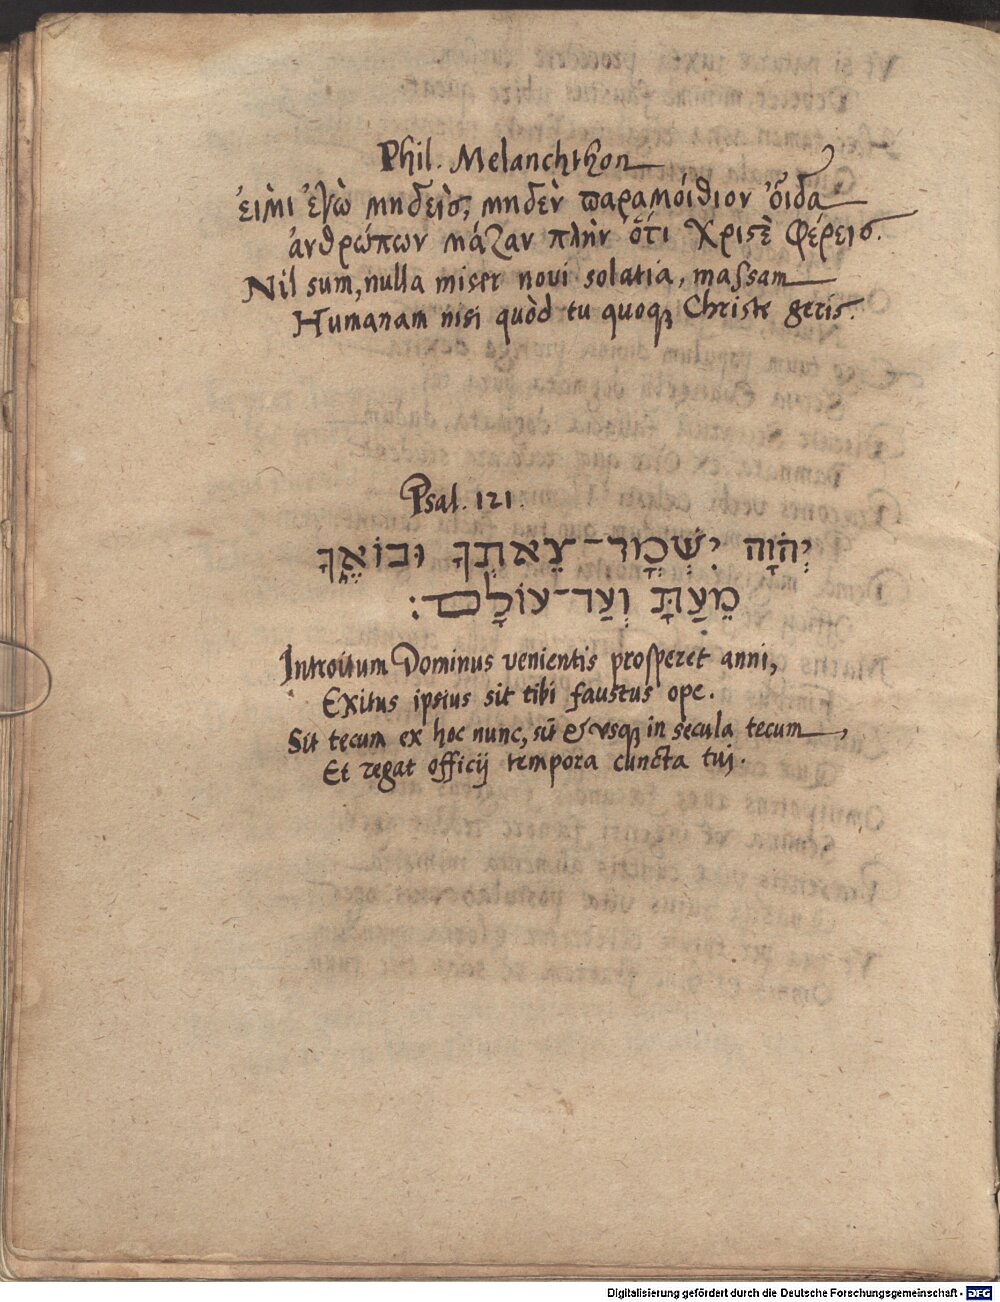 Phil. Melanchthon
εἰμὶ ἐγὼ μηδεὶς, μηδὲν παραμύθιον οἶδα
ἀνθρώπων μάζαν πλὴν ὅτι Χριστὲ φέρεις.
Nil sum, nulla miser novi solatia, massam
Humanam nisi quòd tu quoqꝫ Christe geris.
Psal. 121.
יְהֹוָה יִשְׁמָור־צֵאתְךָ וּבוֹאֶךָ
מֵעַתָּה וְעַד־עוֹלָם׃
Introitum Dominus venientis prosperet anni,
Exitus ipsius sit tibi faustus ope.
Sit tecum ex hoc nunc, sit & vsqꝫ in secula tecum,
Et regat officij tempora cuncta tuj.
Digitalisierung gefördert durch die Deutsche Forschungsgemeinschaft - DFG